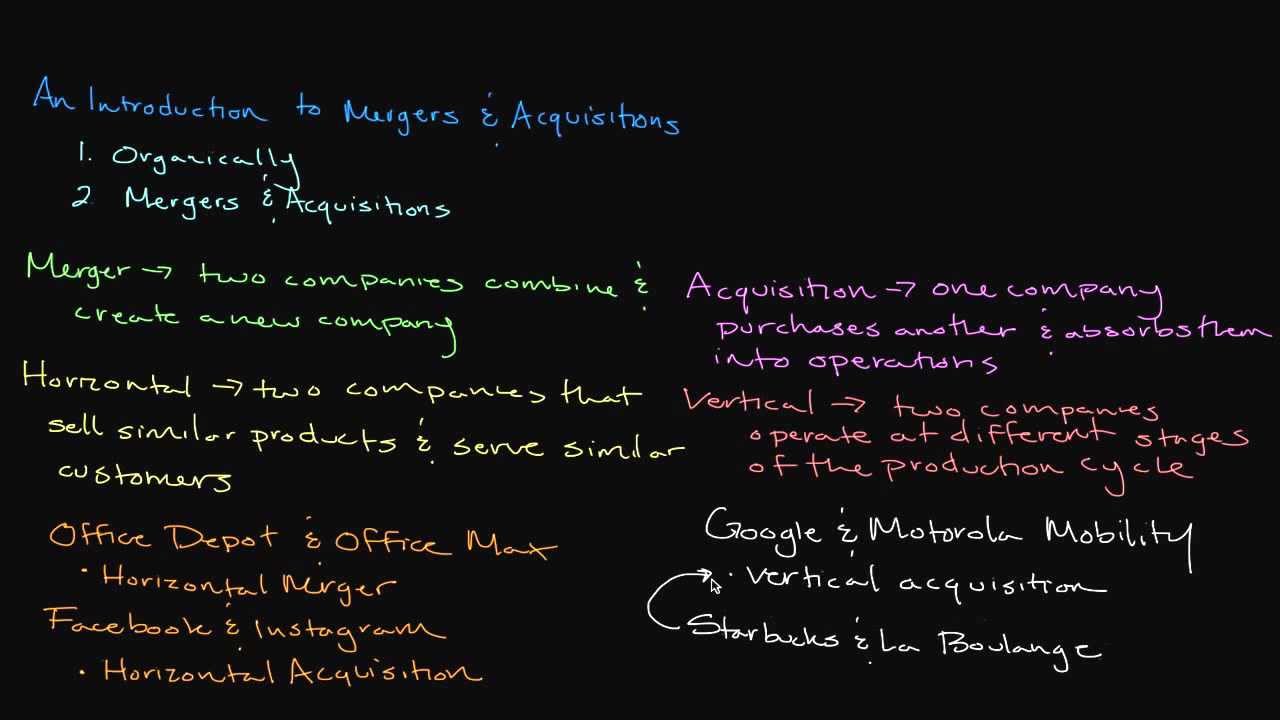 An Introduction to Mergers & Acquisitions
1. Organically
2. Mergers & Acquisitions
Merger → two companies combine &
create a new company
Acquisition → one company
purchases another & absorbs them
into operations
Horizontal → two companies that
sell similar products & serve similar
customers
Vertical → two companies
operate at different stages
of the production cycle
Office Depot & Office Max
· Horizontal Merger
Facebook & Instagram
· Horizontal Acquisition
Google & Motorola Mobility
· Vertical acquisition
Starbucks & La Boulange